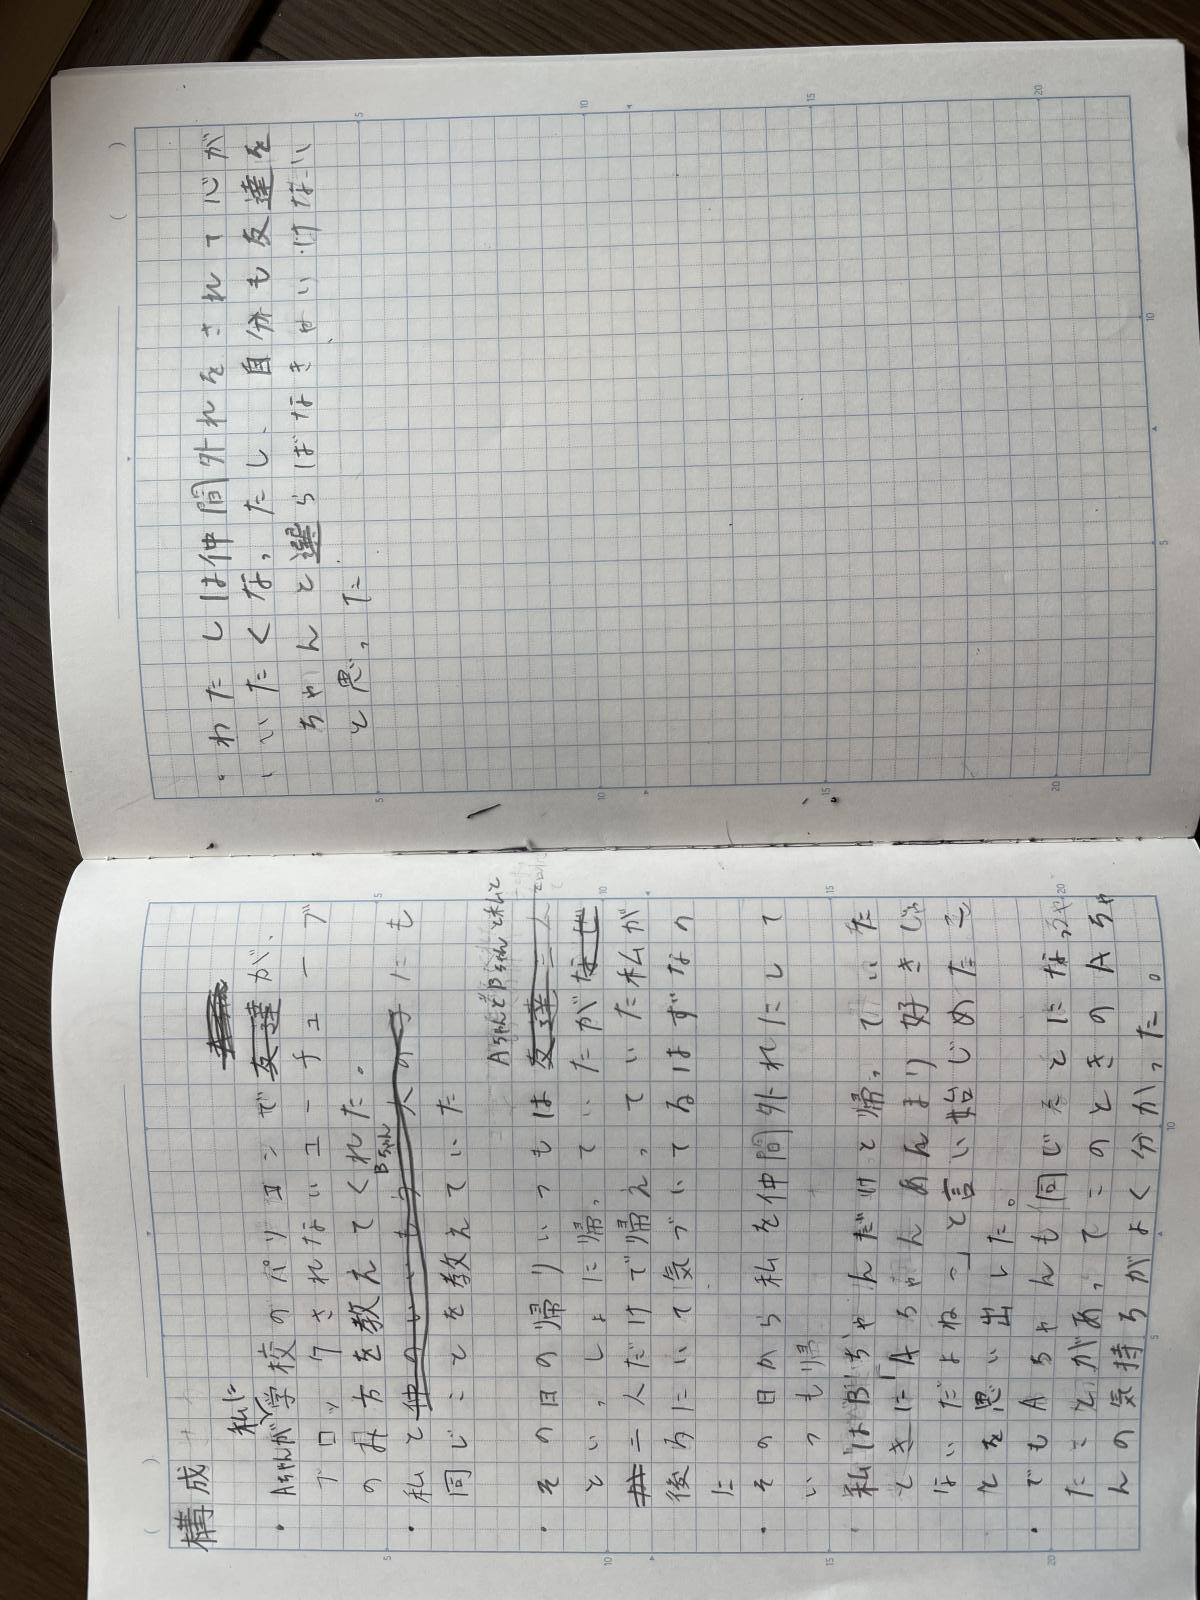 構成
私に
Aちゃんが学校のパソコンで友達が、
ブロックされないユーチューブ
のみ方を教えてくれた。
Bちゃん
・私と仲のいいもう一人の子にも
同じことを教えていた
AちゃんとBちゃんと私で
・その日の帰りいつもは友達三人
といっしょに帰っていたがなぜ
二人だけで帰えっていた私が
後ろにいて気づいてるはずなの
に
・その日から私を仲間外れにして
いつも帰
・私はBちゃんだけと帰っていた
ときに「Aちゃんあんまり好きじゃ
ないだよねっ」と言い始じめたこ
とを思い出した。
・でもAちゃんも同じことになっ
たことがあってこのときのAちゃ
んの気持ちがよく分かった。
・わたしは仲間外れをされて心が
いたくなったし、自分も友達を
ちゃんと選らばなきゃいけない
と思った